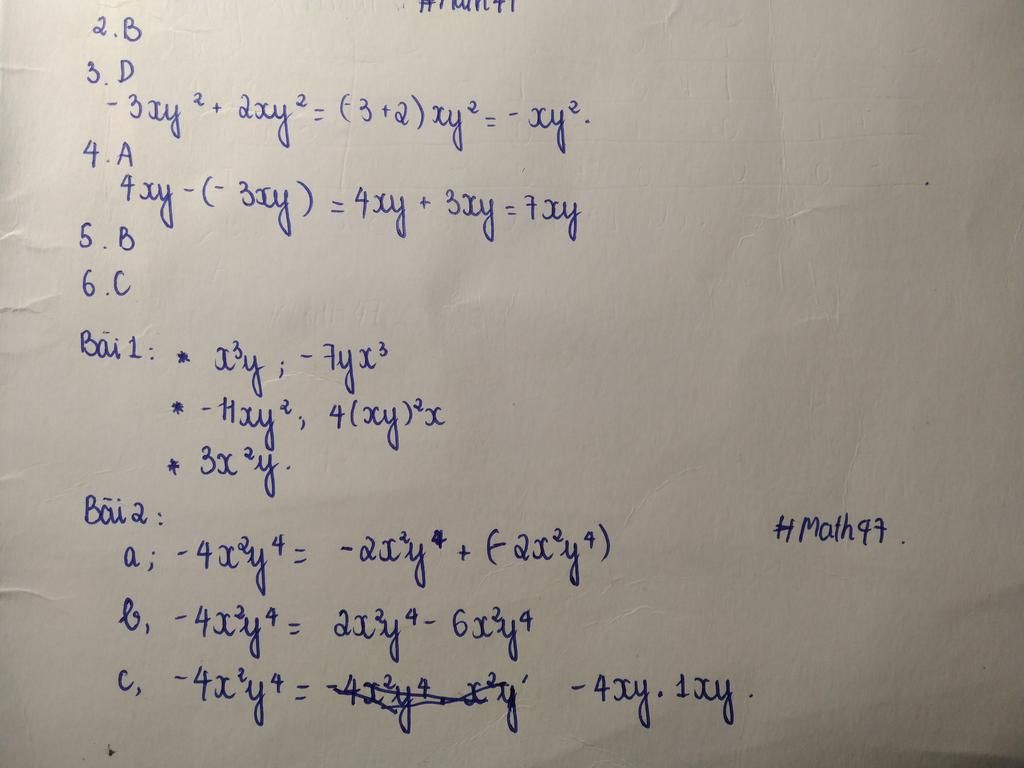 #Math47
2.B
3.D
-3xy² + 2xy² = (-3+2)xy² = -xy².
4.A
4xy-(-3xy) = 4xy + 3xy = 7xy
5.B
6.C
Bài 1: * x³y ; -7yx³
* -11xy², 4(xy)²x
* 3x²y.
Bài 2:
#Math47.
a; -4x²y⁴ = -2x²y⁴ + (-2x²y⁴)
b, -4x²y⁴ = 2x²y⁴ - 6x²y⁴
c, -4x²y⁴ = -4xy . 1xy.